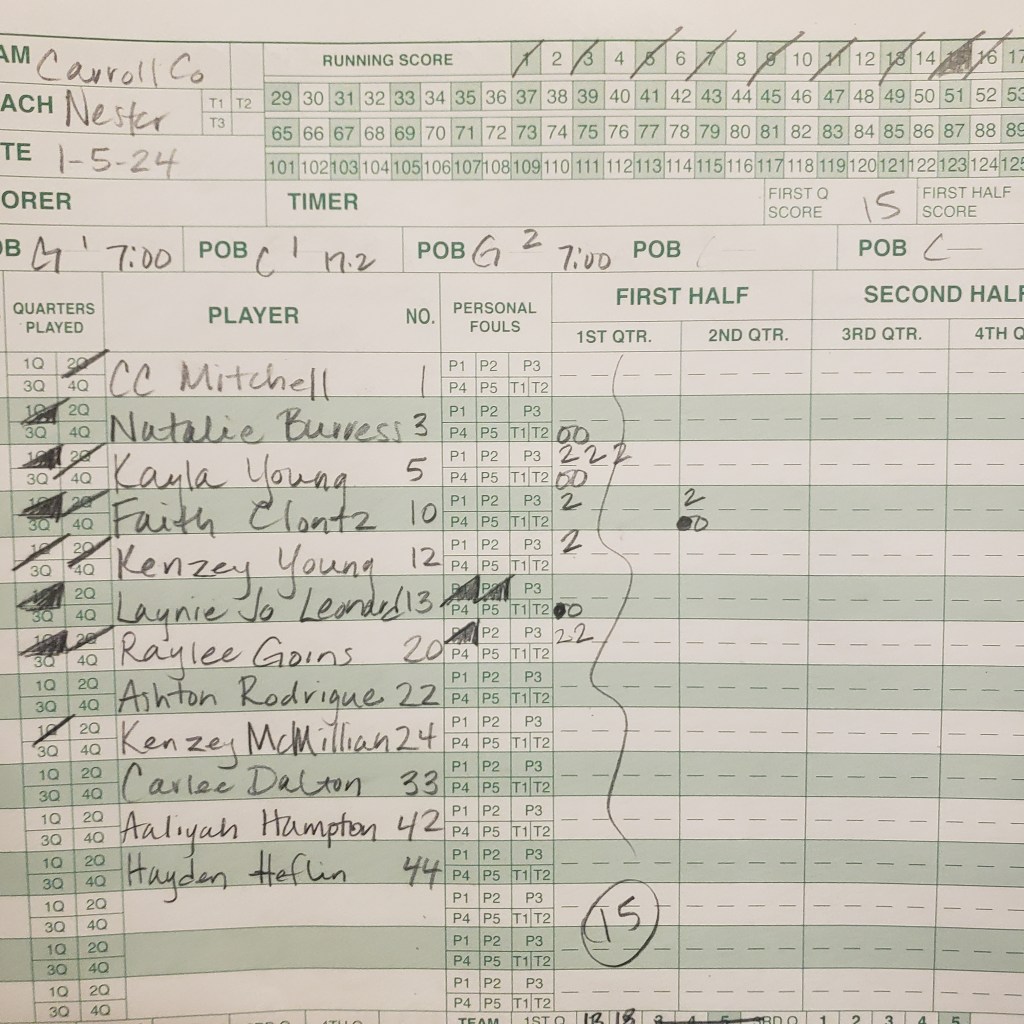 AM Carroll Co RUNNING SCORE 1 2 3 4 5 6 7 8 9 10 11 12 13 14 15 16 17
ACH Nester T1 T2 T3 29 30 31 32 33 34 35 36 37 38 39 40 41 42 43 44 45 46 47 48 49 50 51 52 53
65 66 67 68 69 70 71 72 73 74 75 76 77 78 79 80 81 82 83 84 85 86 87 88 89
TE 1-5-24 101 102 103 104 105 106 107 108 109 110 111 112 113 114 115 116 117 118 119 120 121 122 123 124 125
ORER TIMER FIRST Q SCORE 15 FIRST HALF SCORE
OB G 1 7:00 POB C 1 17.2 POB G 2 7:00 POB POB C
QUARTERS PLAYED PLAYER NO. PERSONAL FOULS FIRST HALF SECOND HALF
1ST QTR. 2ND QTR. 3RD QTR. 4TH Q
1Q 2Q CC Mitchell 1 P1 P2 P3
3Q 4Q P4 P5 T1 T2
1Q 2Q Natalie Burress 3 P1 P2 P3
3Q 4Q P4 P5 T1 T2 00
1Q 2Q Kayla Young 5 P1 P2 P3 2 2 2
3Q 4Q P4 P5 T1 T2 00
1Q 2Q Faith Clontz 10 P1 P2 P3 2 2
3Q 4Q P4 P5 T1 T2 0
1Q 2Q Kenzey Young 12 P1 P2 P3 2
3Q 4Q P4 P5 T1 T2
2Q Laynie Jo Leonard 13 P3
3Q 4Q P4 P5 T1 T2 0
1Q 2Q Raylee Goins 20 P2 P3 2 2
3Q 4Q P4 P5 T1 T2
1Q 2Q Ashton Rodrigue 22 P1 P2 P3
3Q 4Q P4 P5 T1 T2
1Q 2Q Kenzey McMillian 24 P1 P2 P3
3Q 4Q P4 P5 T1 T2
1Q 2Q Carlee Dalton 33 P1 P2 P3
3Q 4Q P4 P5 T1 T2
1Q 2Q Aaliyah Hampton 42 P1 P2 P3
3Q 4Q P4 P5 T1 T2
1Q 2Q Hayden Heflin 44 P1 P2 P3
3Q 4Q P4 P5 T1 T2
1Q 2Q P1 P2 P3
3Q 4Q P4 P5 T1 T2 15
1Q 2Q P1 P2 P3
3Q 4Q P4 P5 T1 T2
1Q 2Q P1 P2 P3
3Q 4Q P4 P5 T1 T2
TEAM 1ST Q 3 4 5 3RD Q 1 2 3 4 5